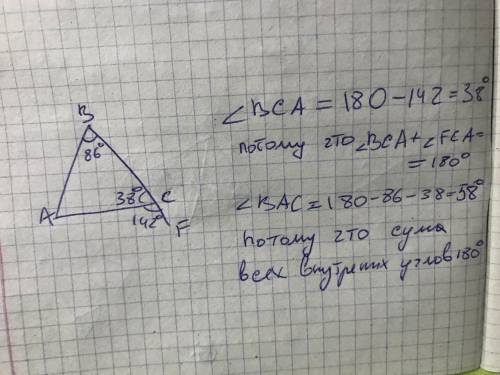 B
86°
A
38°
C
142°
F
∠BCA = 180-142=38°
потому что ∠BCA+∠FCA=
=180°
∠BAC=180-86-38=58°
потому что сума
всех внутрених углов 180°